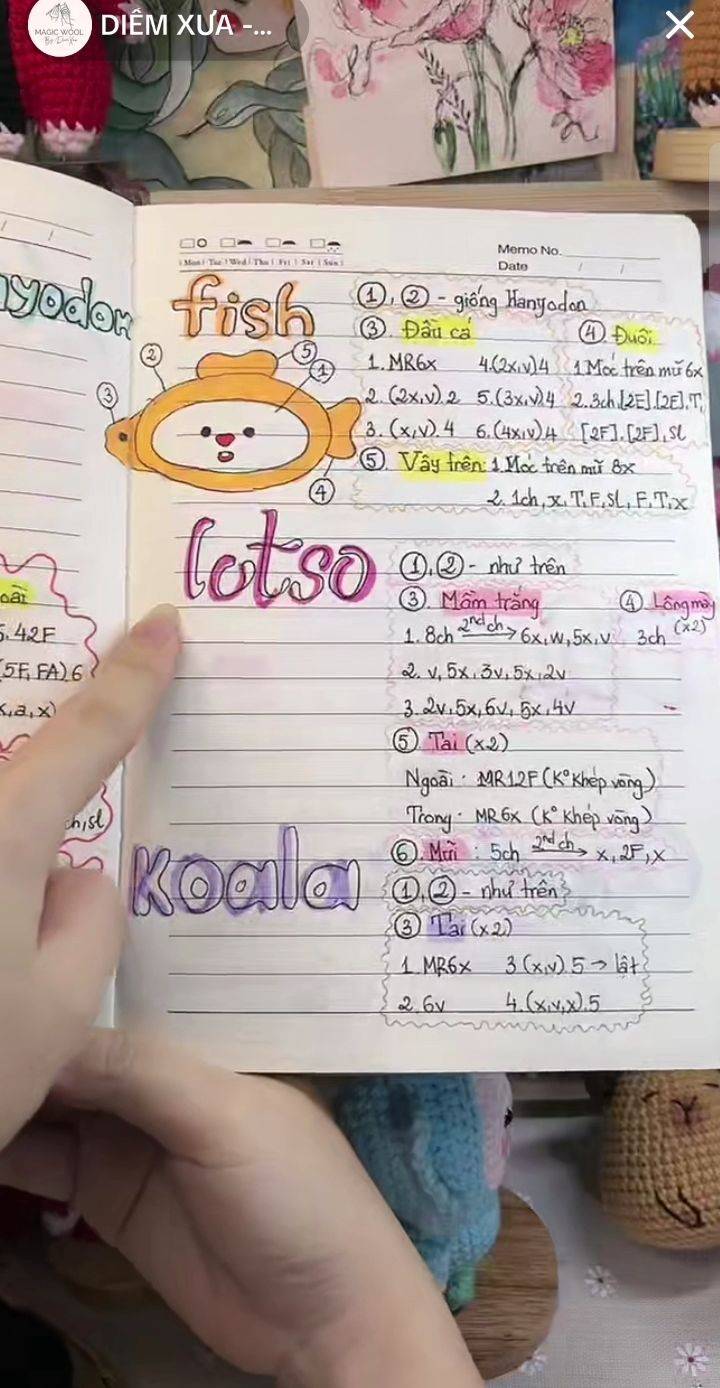 MAGIC WOOL
DIỄM XƯA -...
Mon Tue Wed Thu Fri Sat Sun
Memo No.
Date / /
yodon
fish
①, ② - giống Hanyodon
③. Đầu cá
④ Đuôi
1. MR6x 4.(2x,v)4
2. (2x,v).2 5.(3x,v).4
3. (x,v).4 6.(4x,v)4
1 Móc trên mũi 6x
2. 3ch,[2E].[2E],T,
[2F].[2F],sl
⑤. Vây trên: 1 Móc trên mũi 8x
2. 1ch,x,T,F,sl,F,T,x
① ② ③ ④ ⑤
lotso
①,② - như trên
③. Mõm trắng
④ Lông mày (x2)
1. 8ch 2nd ch→ 6x,w,5x,v
3ch
2. v,5x,3v,5x,2v
3. 2v,5x,6v,5x,4v
⑤. Tai (x2)
Ngoài: MR12F (K° khép vòng)
Trong: MR6x (K° khép vòng)
⑥. Mũi : 5ch 2nd ch→ x,2F,x
oài
5.42F
(5F,FA)6
x,a,x)
ch,sl
Koala
①,② - như trên
③ Tai (x2)
1. MR6x 3(x,v).5→ lật
2. 6v 4.(x,v,x).5